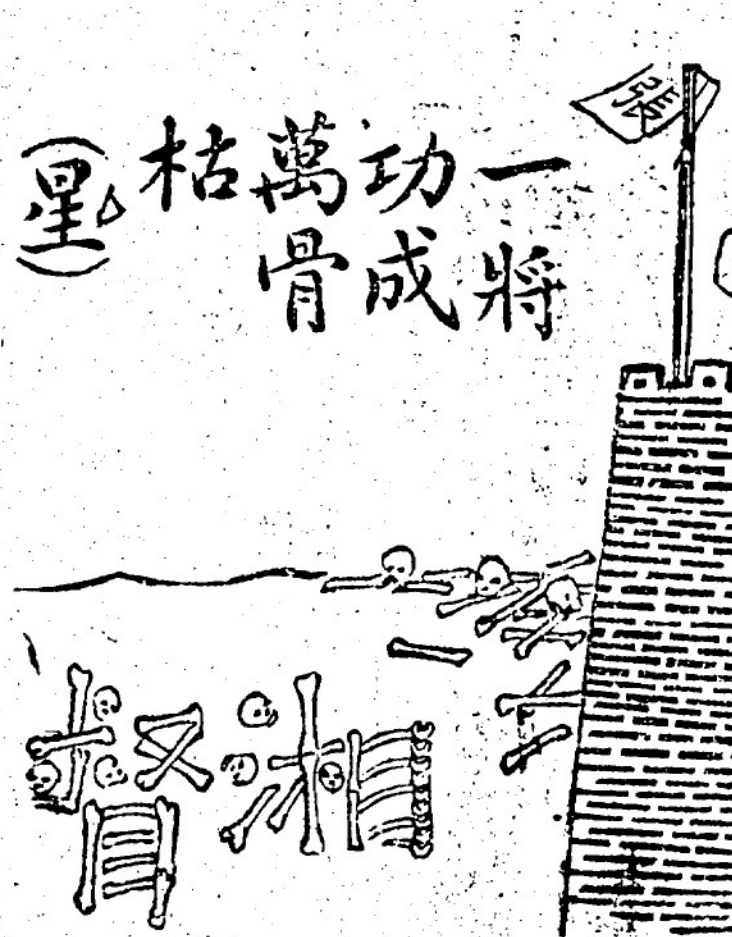 一將
功成
萬骨
枯
(星)
湘督